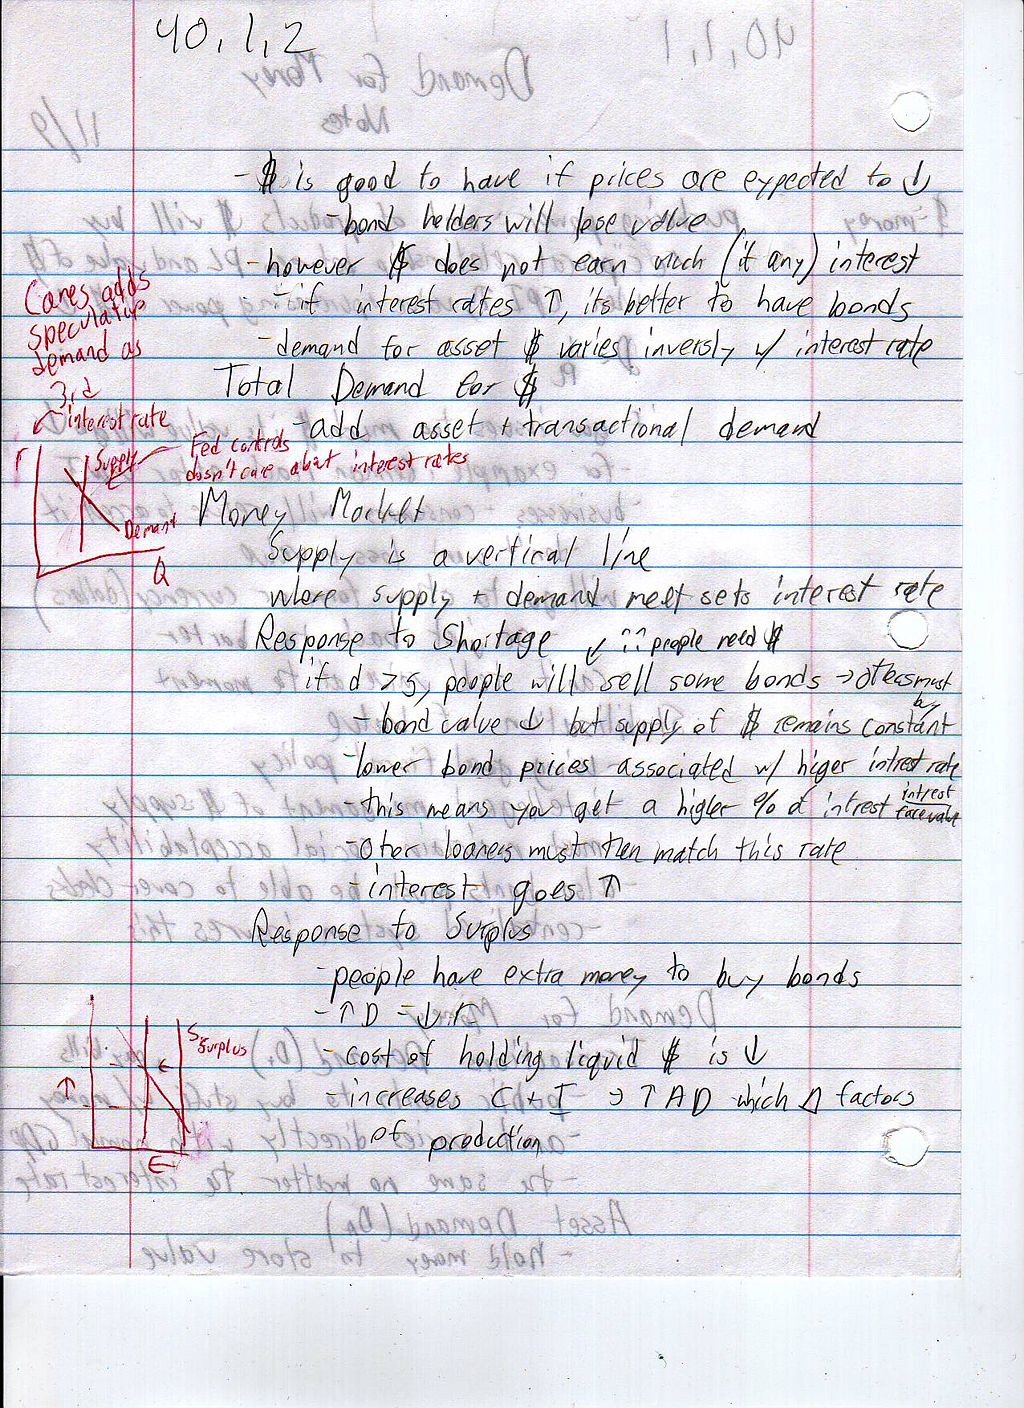 40,1,2
- $ is good to have if prices are expected to ↓
- bond helders will lose value
- however $ does not earn much (if any) interest
- if interest rates ↑, its better to have bonds
- demand for asset $ varies inversly w/ interest rate
Total Demand for $
- add asset + transactional demand
Canes adds
speculative
demand as
3rd
interest rate
r
Supply
Fed controls
doesn't care about interest rates
Demand
Q
Money Market
Supply is a vertical line
where supply + demand meet sets interest rate
Response to Shortage ↙ ∵ people need $
if d > s, people will sell some bonds → others must
buy
- bond value ↓ but supply of $ remains constant
- lower bond prices associated w/ higer intrest rate
- this means you get a higher % of intrest intrest
facevalue
- Oter loaners must then match this rate
- interest goes ↑
Response to Surplus
- people have extra money to buy bonds
- ↑ D = ↓
- cost of holding liquid $ is ↓
- increases C + I → ↑ AD which Δ factors
of production
S
Surplus
↑
←
←